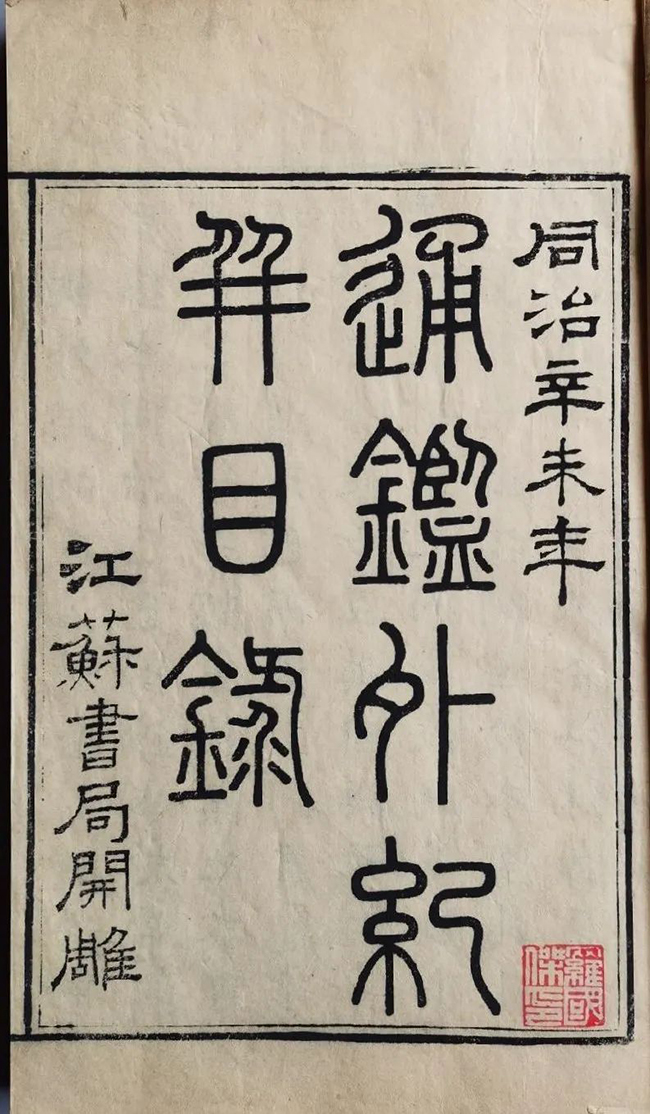 同治辛未年
通鑑外紀
并目錄
江蘇書局開雕
羅國傑印